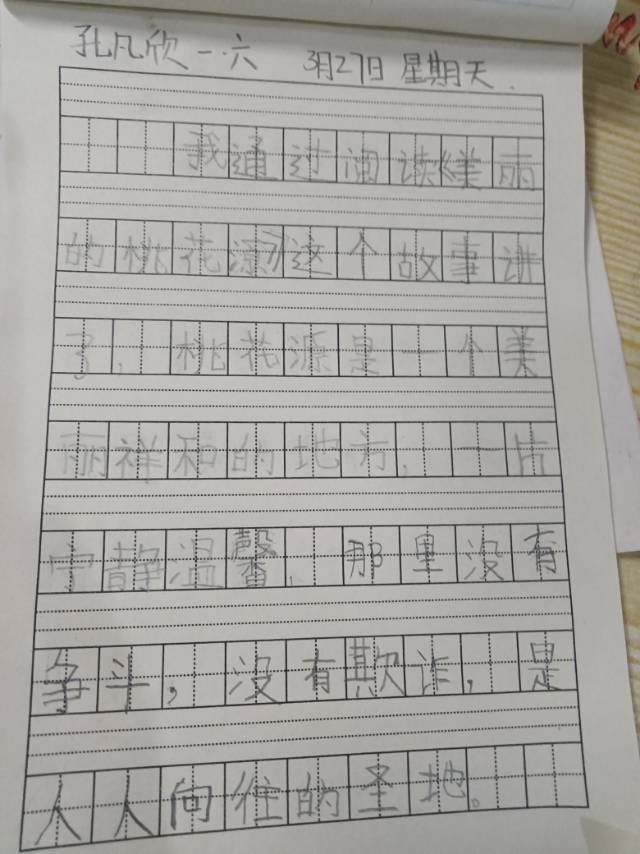 孔凡欣 一.六 3月27日 星期天.
我通过阅读《美丽
的桃花源》这个故事讲
了,桃花源是一个美
丽祥和的地方,一片
宁静温馨,那里没有
争斗,没有欺诈,是
人人向往的圣地。